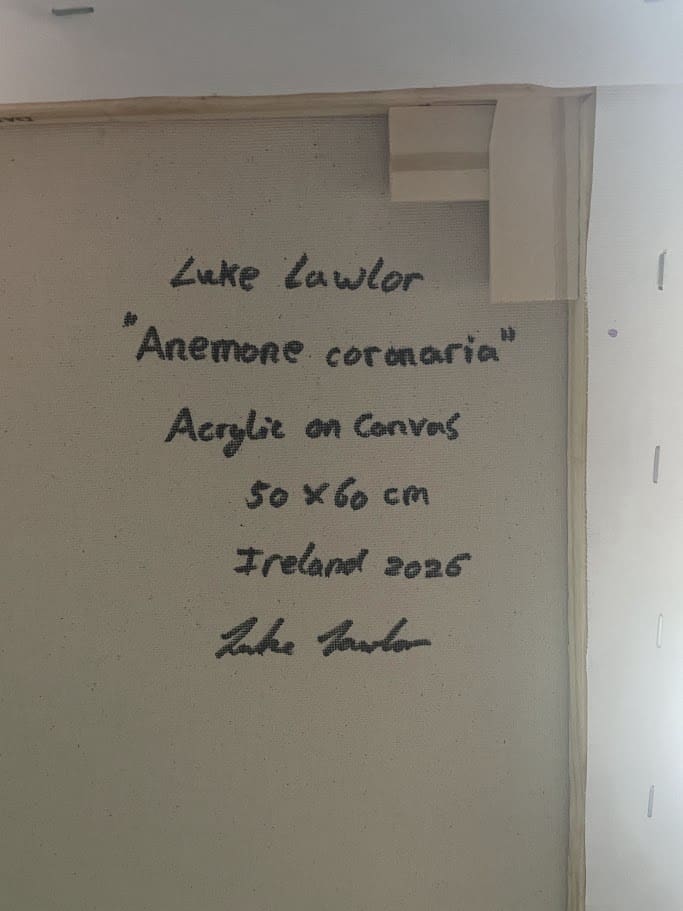 Luke Lawlor
"Anemone coronaria"
Acrylic on Canvas
50 x 60 cm
Ireland 2026
Luke Lawlor